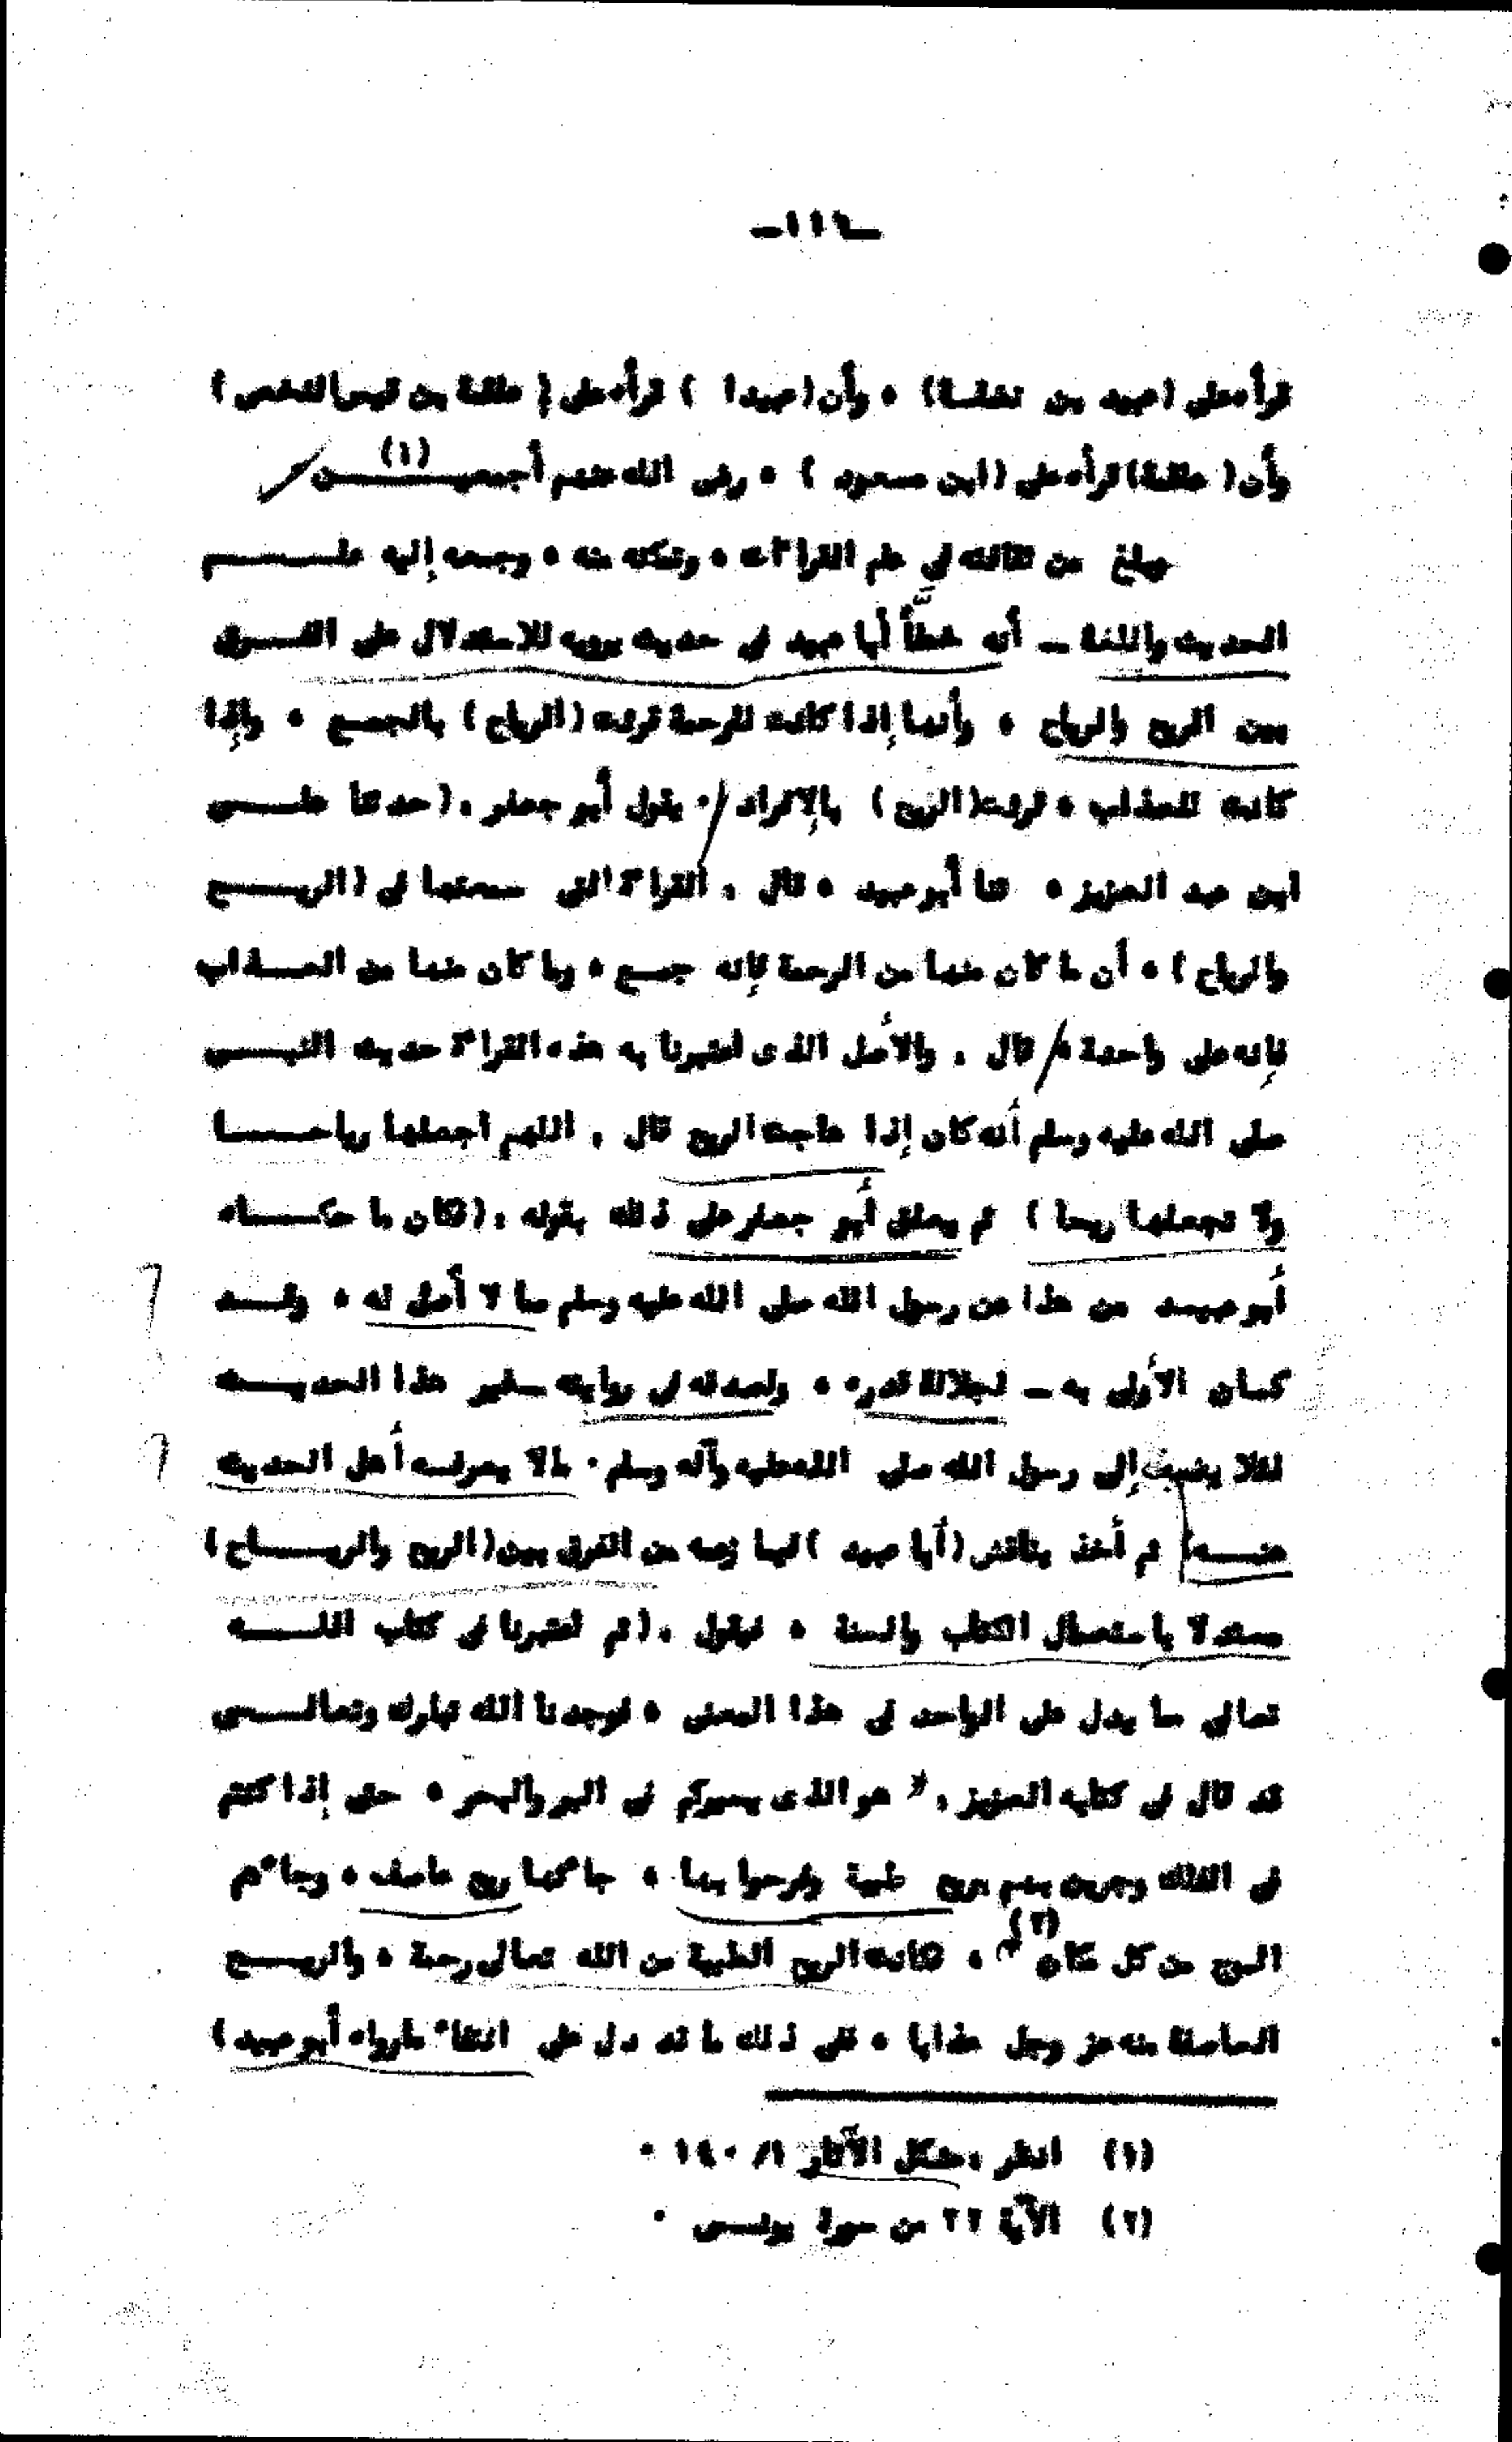 ـ١١٦ـ
قرأه على (عبيد بن نضلة) ، وأن (عبيدا ) قرأه على ( علقمة بن قيس النخعي )
وأن ( علقمة) قرأه على (ابن مسعود ) ، رضى الله عنهم أجمعيـــــن (١)
وبلغ من ثقافته في علم القراءات ، وتمكنه منه ، وجمعه إليه علـــــم
الحديث واللغة ــ أنه خطأ أبا عبيد في حديث يرويه للاستدلال على الفـــرق
بين الريح والرياح ، وأنها إذا كانت للرحمة قرئت (الرياح ) بالجمـع ، وإذا
كانت للعذاب ، قرئت (الريح ) بالإفراد ، يقول أبو جعفر : (حدثنا علـــى
ابن عبد العزيز ، ثنا أبو عبيد ، قال : القراءة التى سمعتها في (الريـــح
والرياح ) ، أن ما كان منها من الرحمة فإنه جمـع ، وما كان منها من العـــذاب
فإنه على واحدة ، قال : والأصل الذى اعتبرنا به هذه القراءة حديث النبـــى
صلى الله عليه وسلم أنه كان إذا هاجت الريح قال : اللهم اجعلها رياحـــا
ولا تجعلها ريحا ) ثم يعلق أبو جعفر على ذلك بقوله : (فكان ما حكـــاه
أبو عبيـد من هذا عن رسول الله صلى الله عليه وسلم مما لا أصل له ، وقـــد
كـان الأولى به ــ لجلالة قدره ، ولصدقه في روايته ــ غير هذا الحديـــث
لئلا يضيف إلى رسول الله صلى الله عليه وآله وسلم ، مالا يعرفـه أهل الحديث
عنـــه) ثم أخذ يناقش (أبا عبيد ) فيما زعمه من الفرق بين (الريح والريـــاح)
مستدلا باستعمال الكتاب والسنة ، فيقول : (ثم اعتبرنا في كتاب اللـــه
تعالى مما يدل على الواحد في هذا المعنى ، فوجدنا الله تبارك وتعالـــى
قد قال في كتابه العزيز : " هو الذى يسيركم في البر والبحر ، حتى إذا كنتم
في الفلك وجرين بهم بريح طيبة وفرحوا بها ، جاءتها ريح عاصف ، وجاءهم
الموج من كل مكان " (٢) ، فكانت الريح الطيبة من الله تعالى رحمة ، والريـــح
العاصفة منه عز وجل عذابا ، ففى ذلك ما قد دل على انتفاء ما رواه أبو عبيد )
(١) انظر : مشكل الآثار ١/ ١٤٠ ٠
(٢) الآية ٢٢ من سورة يونـس ٠